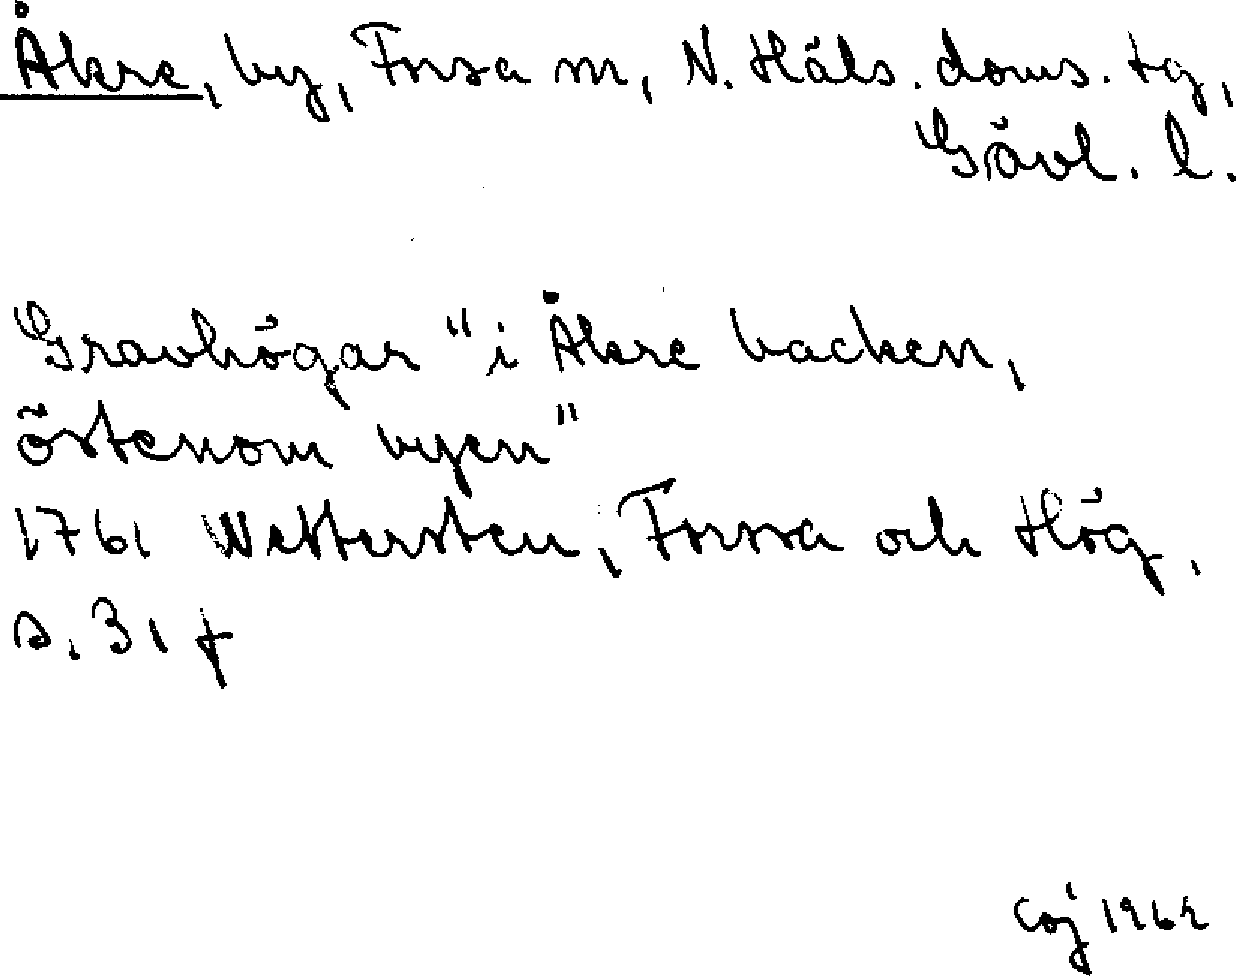 Åkre, by, Forsa sn, N. Häls. doms. tg,
Gävl. l.
Gravhögar "i Åkre backen,
östenom byen"
1761 Wettersten, Forssa och Hög,
s. 31 f
CGJ 1969